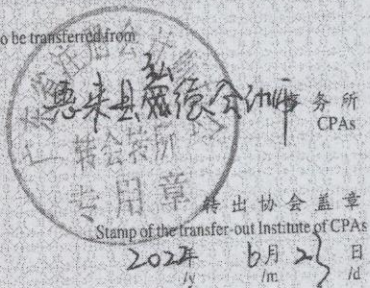 o be transferred from
惠来县弘德会计师事务所
CPAs
转会转所
专用章
转出协会盖章
Stamp of the transfer-out Institute of CPAs
2022 6月 23日
/y /m /d